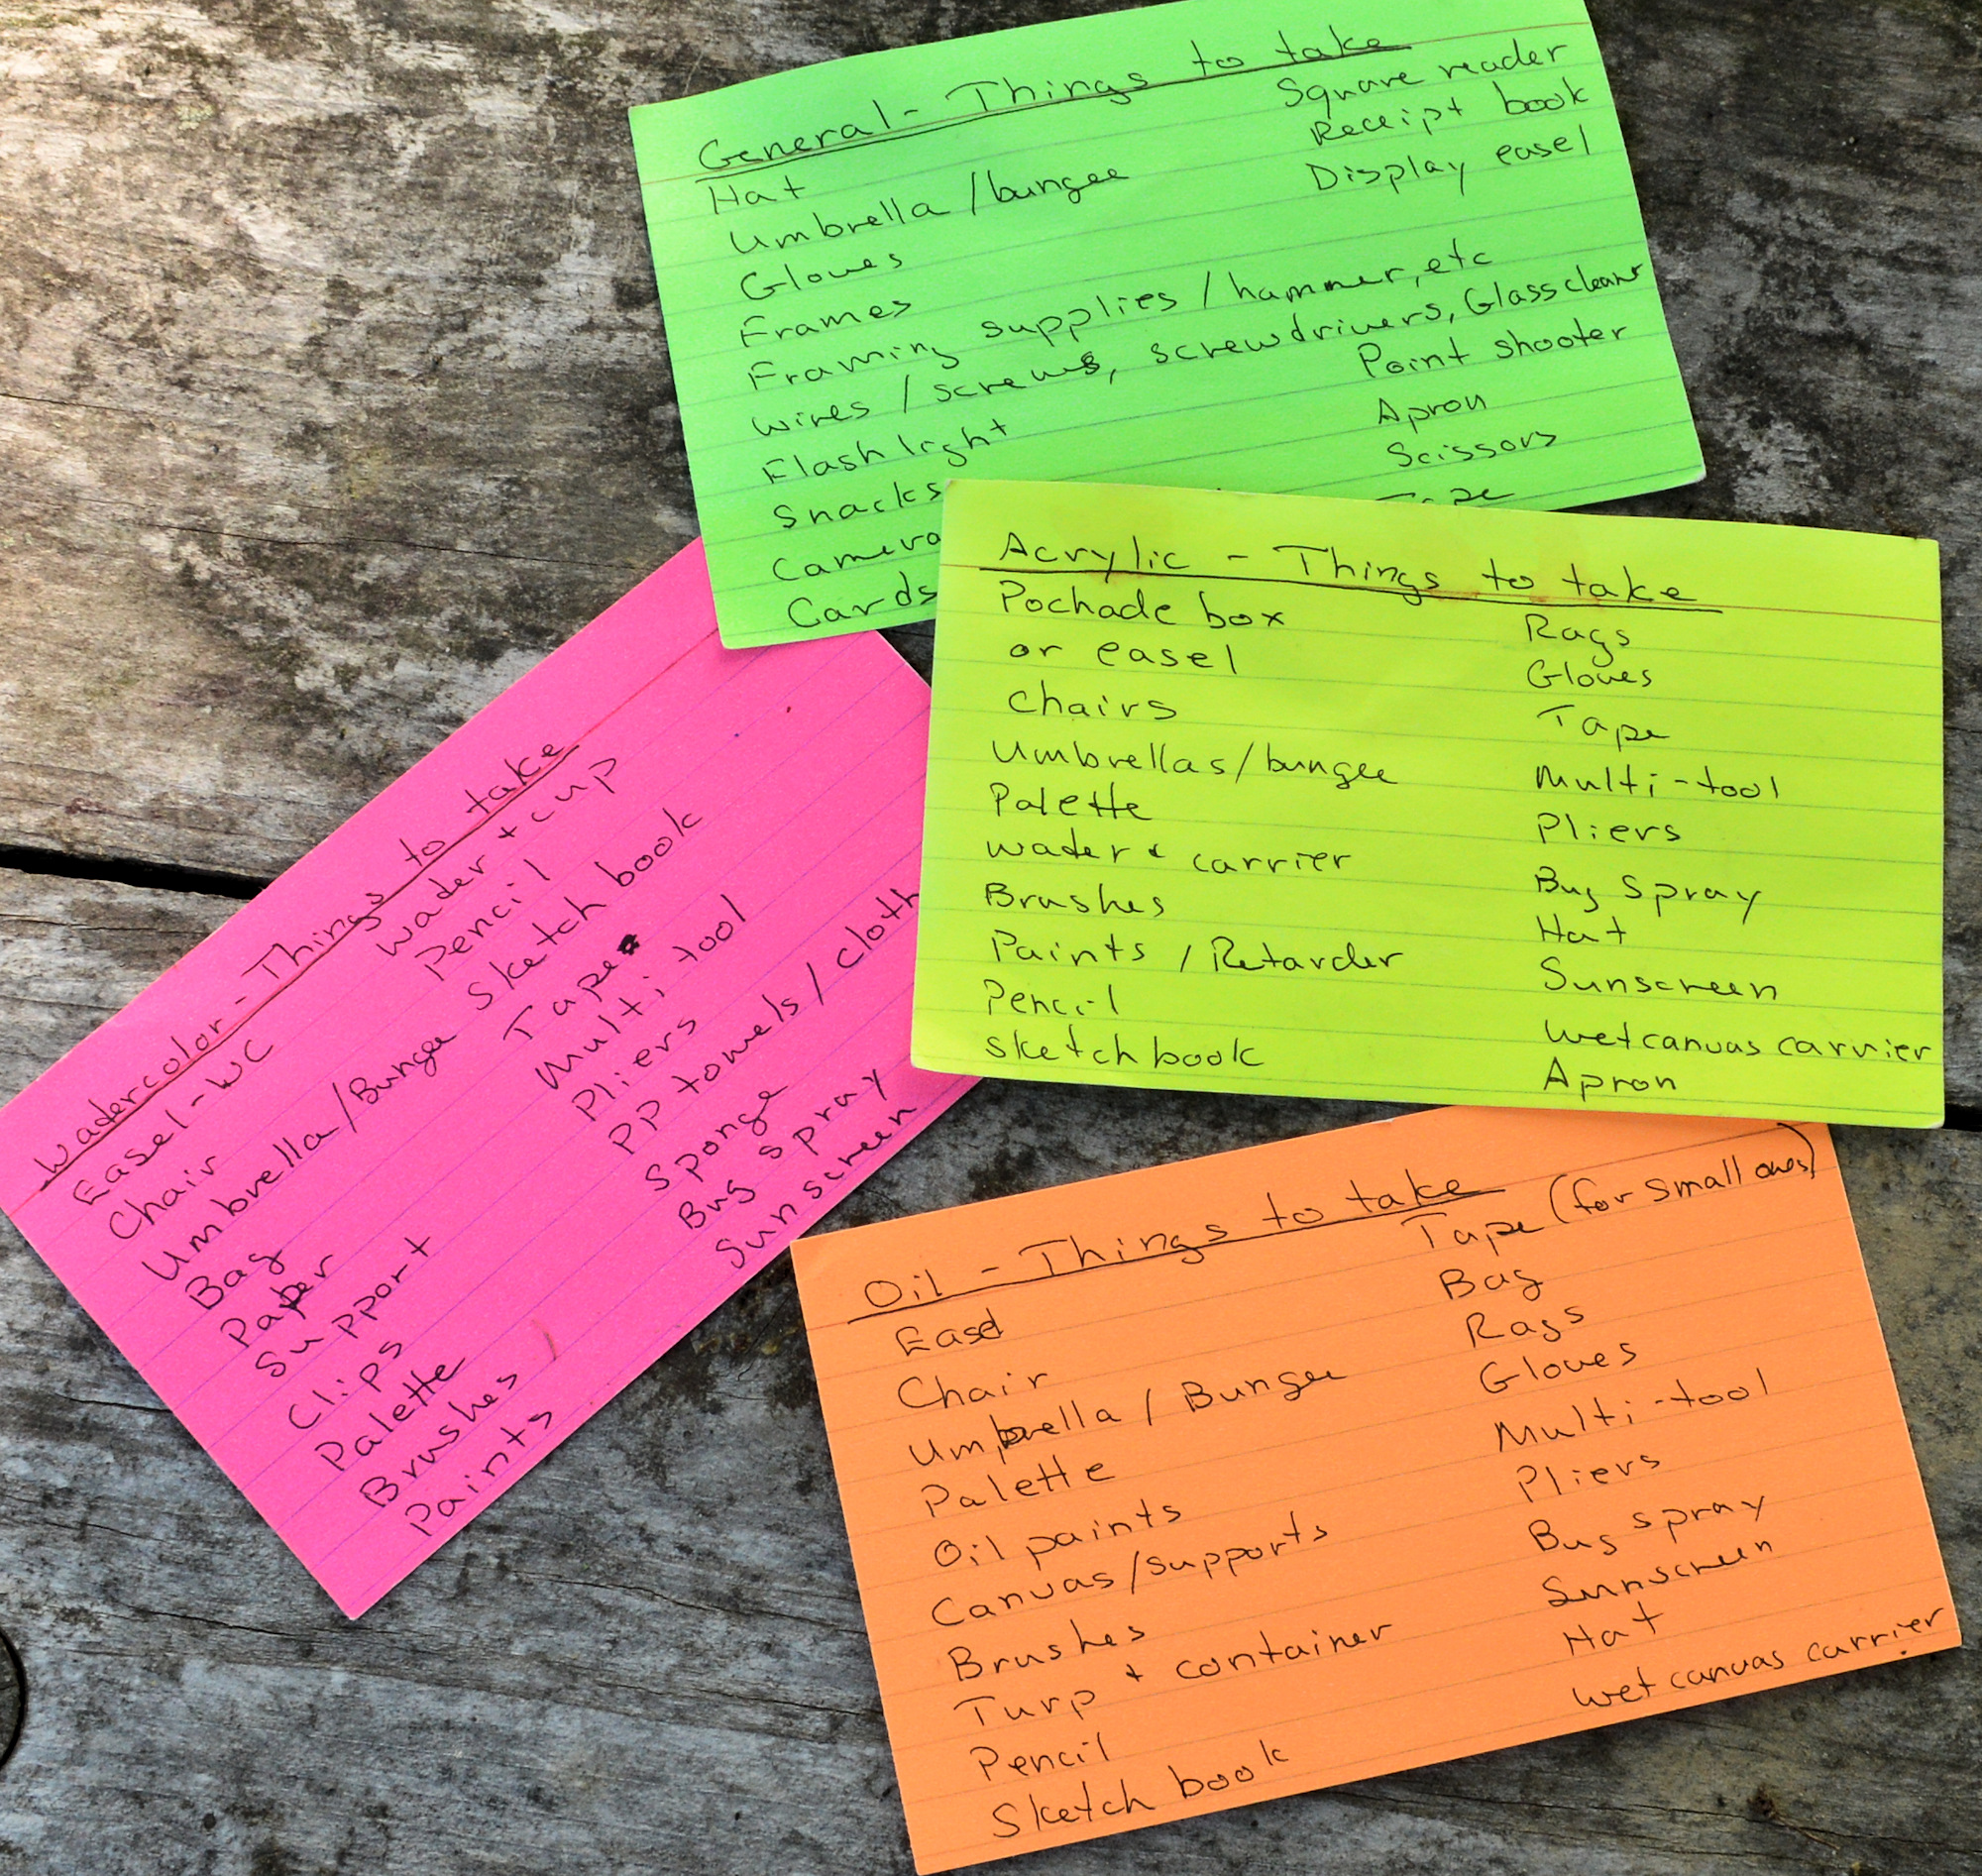 General - Things to take
Hat
Umbrella / bungee
Gloves
Frames
Framing supplies / hammer, etc
wires / screws, screwdrivers, Glass cleaner
Flash light
Snacks
Camera
Cards
Square reader
Receipt book
Display easel
Point shooter
Apron
Scissors
Tape
Acrylic - Things to take
Pochade box
or easel
Chairs
Umbrellas / bungee
Palette
water & carrier
Brushes
Paints / Retarder
Pencil
Sketch book
Rags
Gloves
Tape
Multi-tool
Pliers
Bug Spray
Hat
Sunscreen
wet canvas carrier
Apron
Watercolor - Things to take
Easel - WC
Chair
Umbrella / Bungee
Bag
Paper
Support
Clips
Palette
Brushes
Paints
water + cup
Pencil
Sketch book
Tape
Multi tool
Pliers
PP towels / cloth
Sponge
Bug spray
Sunscreen
Oil - Things to take
Easel
Chair
Umbrella / Bungee
Palette
Oil paints
Canvas / supports
Brushes
Turp & container
Pencil
Sketch book
Tape (for small ones)
Bag
Rags
Gloves
Multi-tool
Pliers
Bug spray
Sunscreen
Hat
wet canvas carrier